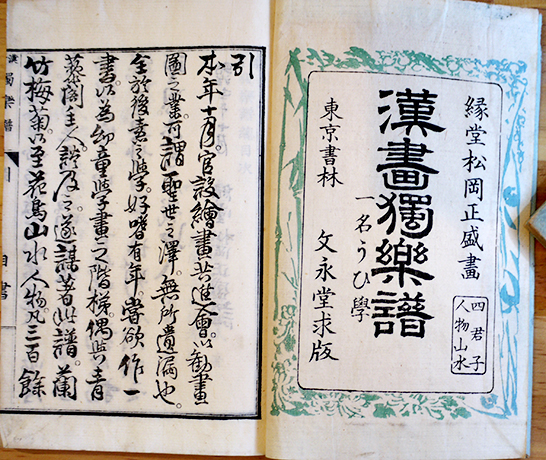 緑堂松岡正盛畫
四君子
人物山水
漢畫獨樂譜
一名うひ學
東京書林
文永堂求版
引
本年十月。官設繪畫共進會。以勸畫
圖之業。可謂聖世之澤。無所遺漏也。
余於後素之學。好嗜有年。嘗欲作一
書。以為幼童學畫之階梯。偶與青
藜閣主人。談及之。遂謀著此譜。蘭
竹梅菊。以至花鳥山水人物。凡三百餘
漢
獨樂譜
引
自書